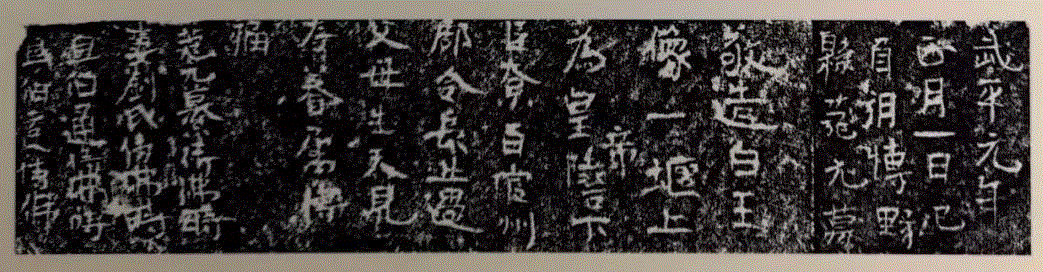 武平元年
正月一日
酉朔博野
縣范元
敬造白玉
像一塸上
為皇帝陛下
臣寮百官州
郡令長並過
父母生天見
存眷屬得
福
范元侍佛時
妻劉氏侍佛時
息伯通侍佛時
息伯侍佛